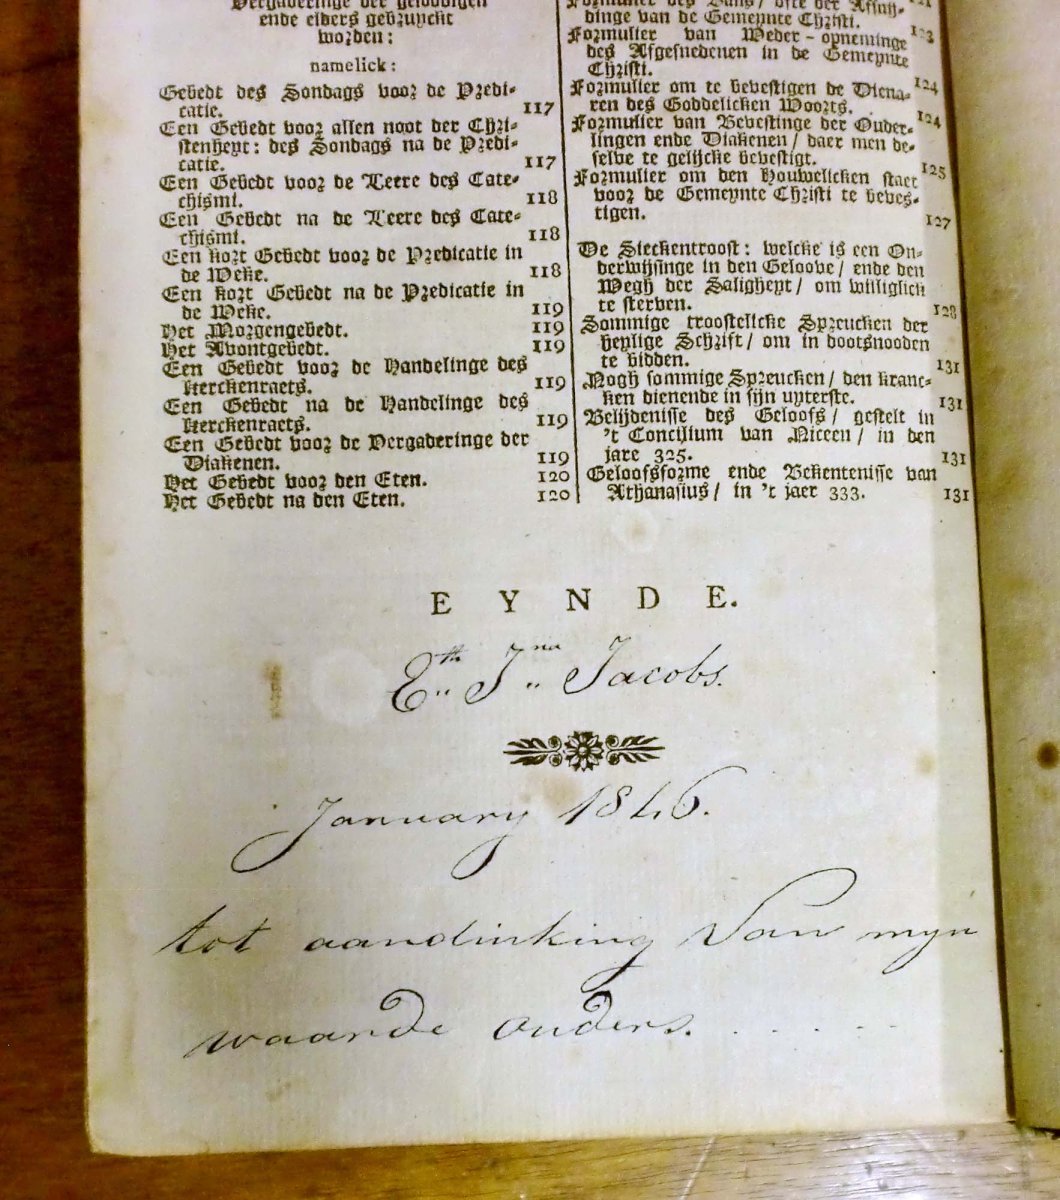 Vergaderinge der geloovigen
ende elders gebruyckt
worden:
namelick:
Gebedt des Sondags voor de Predi-
catie. 117
Een Gebedt voor allen noot der Chri-
stenheyt: des Sondags na de Predi-
catie. 117
Een Gebedt voor de Leere des Cate-
chismi. 118
Een Gebedt na de Leere des Cate-
chismi. 118
Een kort Gebedt voor de Predicatie in
de Weke. 118
Een kort Gebedt na de Predicatie in
de Weke. 119
Het Morgengebedt. 119
Het Avontgebedt. 119
Een Gebedt voor de Handelinge des
Kerckenraets. 119
Een Gebedt na de Handelinge des
Kerckenraets. 119
Een Gebedt voor de Vergaderinge der
Diakenen. 119
Het Gebedt voor den Eten. 120
Het Gebedt na den Eten. 120
Formulier des Bans / ofte der Affnij-
dinge van de Gemeynte Christi.
Formulier van Weder-opneminge 123
des Afgesnedenen in de Gemeynte
Christi.
Formulier om te bevestigen de Diena- 124
ren des Goddelicken Woorts.
Formulier van Bevestinge der Ouder- 124
lingen ende Diakenen / daer men de-
selve te gelijcke bevestigt. 125
Formulier om den Houwelicken staet
voor de Gemeynte Christi te beves-
tigen. 127
De Sieckentroost: welcke is een On-
derwijsinge in den Geloove / ende den
Wegh der Saligheyt / om williglick
te sterven. 128
Sommige troostelicke Spreucken der
heylige Schrift / om in dootsnooden
te bidden. 131
Nogh sommige Spreucken / den kranc-
ken dienende in sijn uyterste. 131
Belijdenisse des Geloofs / gestelt in
't Concilium van Niceen / in den
jare 325. 131
Geloofsforme ende Bekentenisse van
Athanasius / in 't jaer 333. 131
EYNDE.
Eth„ Jna„ Jacobs.
January 1846.
tot aandinking Van myn
waarde ouders. . . . . .